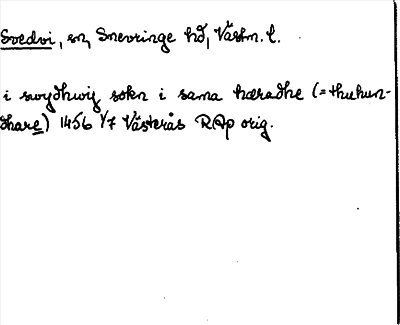 Svedvi, sn, Snevringe hd, Västm. l.
i swydhwij sokn i sama hæradhe (= thuhun-
dhare) 1456 1/7 Västerås RAp orig.